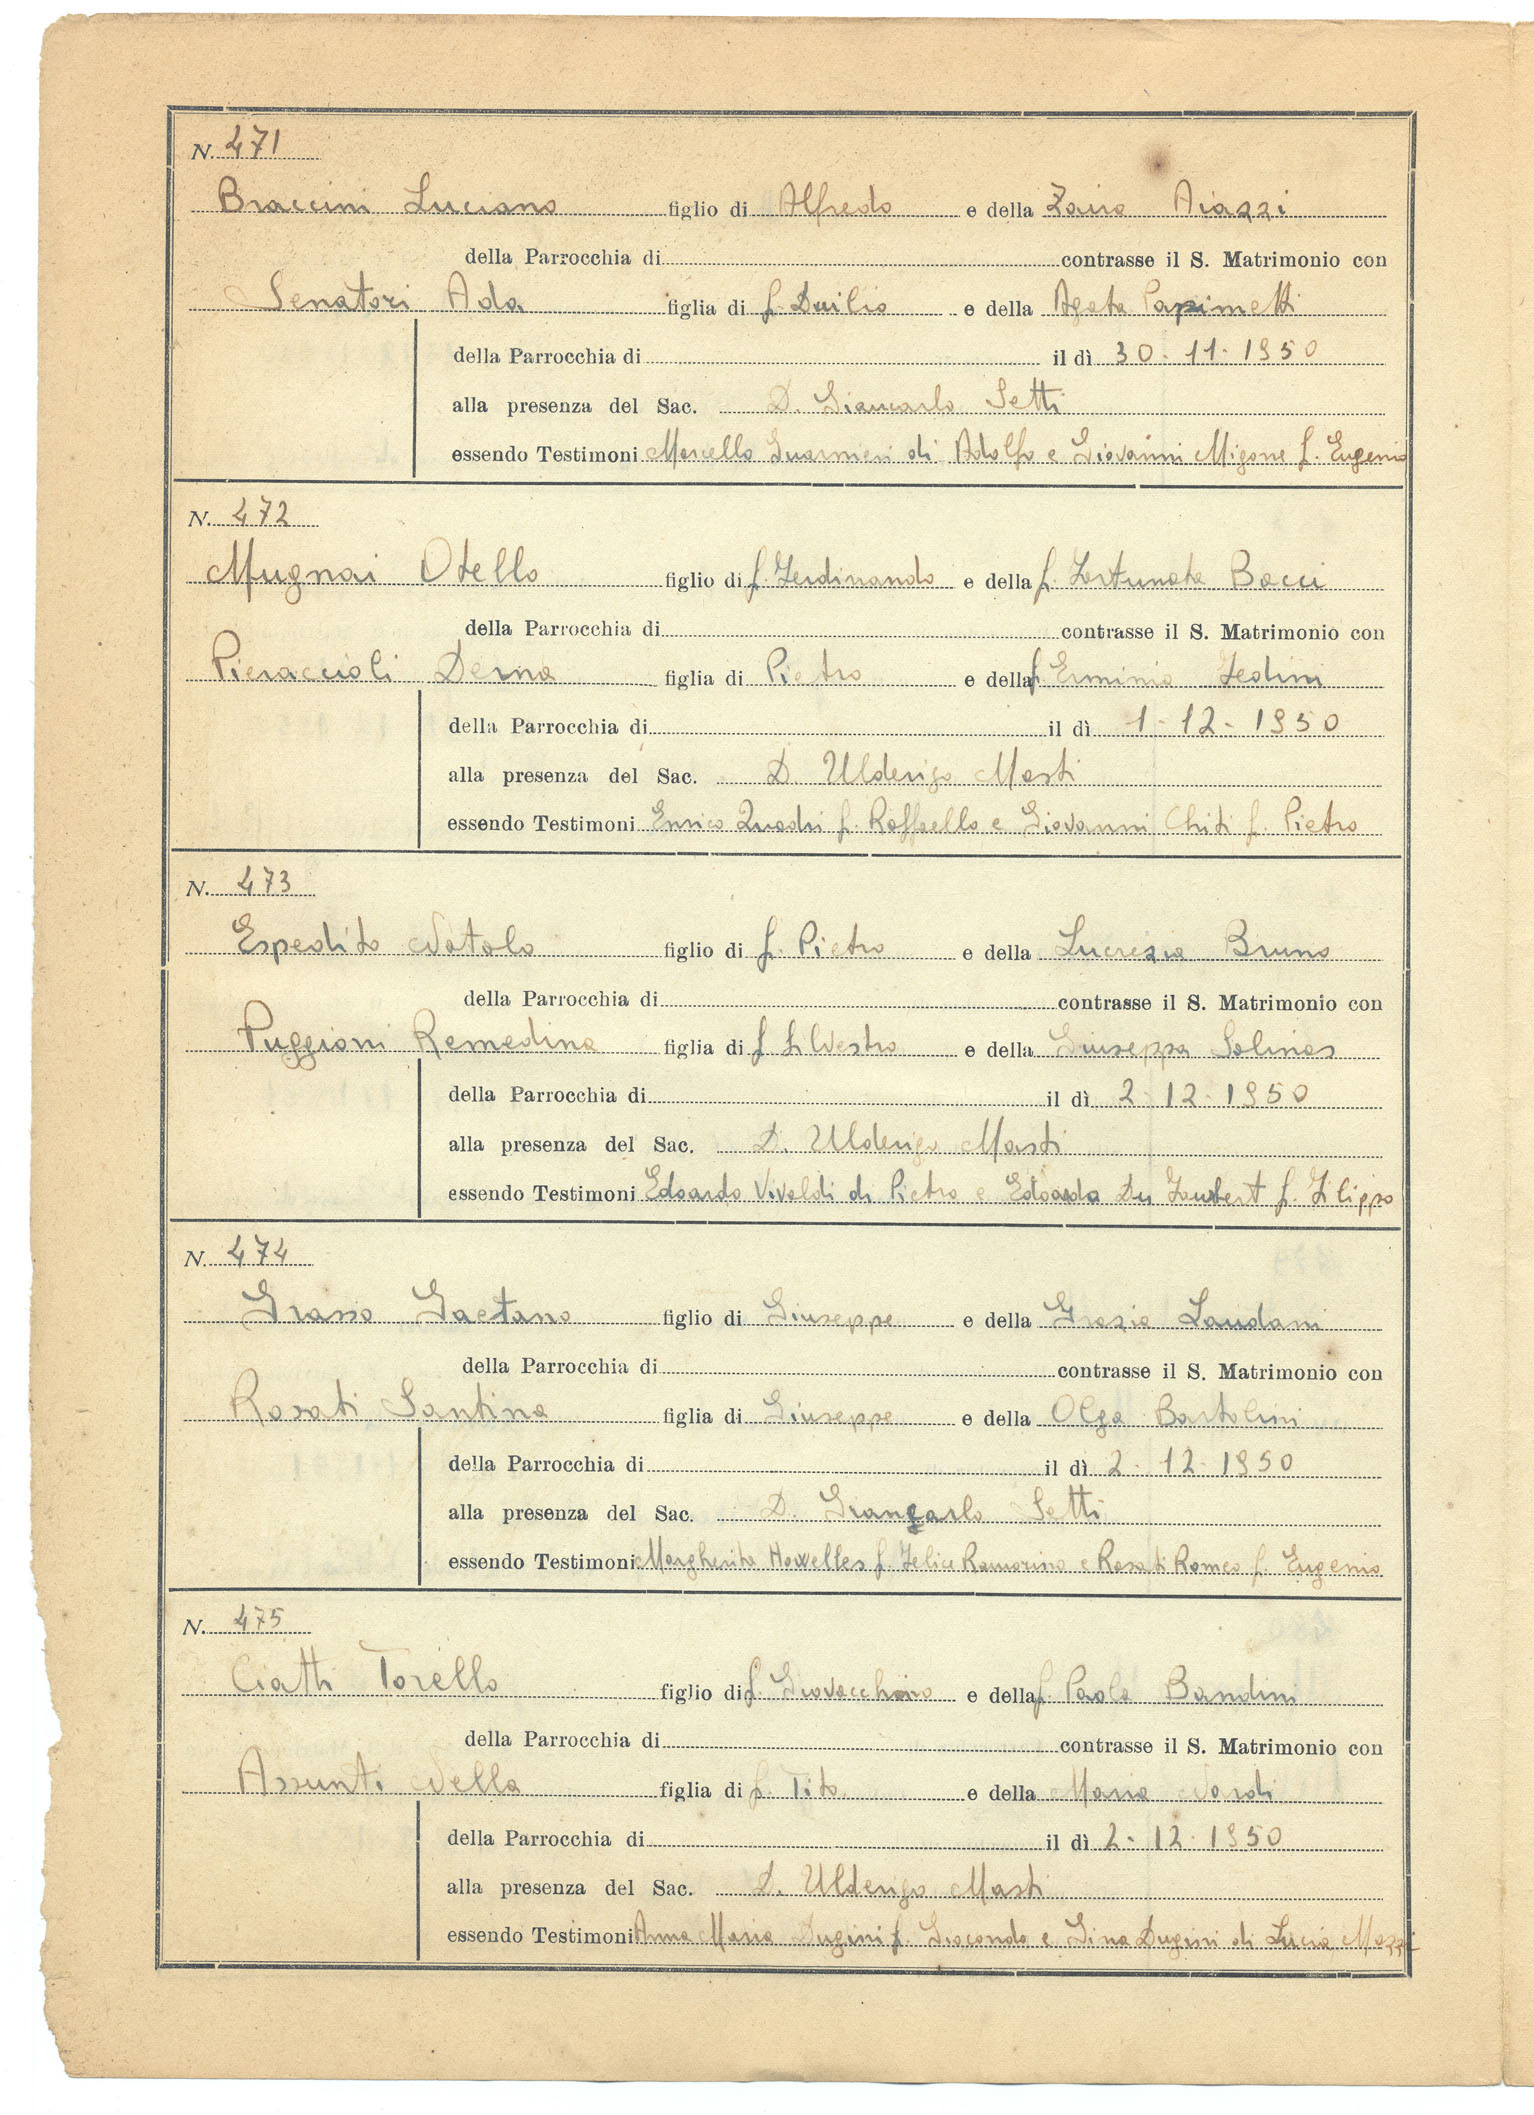 N. 471
Braccini Luciano figlio di Alfredo e della Zaira Aiazzi
della Parrocchia di contrasse il S. Matrimonio con
Senatori Ada figlia di f. Duilio e della Agata Papimetti
della Parrocchia di il dì 30-11-1950
alla presenza del Sac. D. Giancarlo Setti
essendo Testimoni Marcello Guarnieri di Adolfo e Giovanni Migone f. Eugenio
N. 472
Mugnai Otello figlio di f. Ferdinando e della f. Fortunata Bacci
della Parrocchia di contrasse il S. Matrimonio con
Pieraccioli Derna figlia di Pietro e della f. Erminia Fedini
della Parrocchia di il dì 1-12-1950
alla presenza del Sac. D. Ulderigo Masti
essendo Testimoni Enrico Quadri f. Raffaello e Giovanni Chiti f. Pietro
N. 473
Espedito Natalo figlio di f. Pietro e della Lucrezia Bruno
della Parrocchia di contrasse il S. Matrimonio con
Puggioni Remedina figlia di f. Silvestro e della Giuseppa Salinas
della Parrocchia di il dì 2-12-1950
alla presenza del Sac. D. Ulderigo Masti
essendo Testimoni Edoardo Vivaldi di Pietro e Edoardo Du Jaubert f. Filippo
N. 474
Grasso Gaetano figlio di Giuseppe e della Grazia Laudani
della Parrocchia di contrasse il S. Matrimonio con
Rosati Santina figlia di Giuseppe e della Olga Bartolini
della Parrocchia di il dì 2-12-1950
alla presenza del Sac. D. Giancarlo Setti
essendo Testimoni Margherita Howelles f. Felice Ramorino e Rosati Romeo f. Eugenio
N. 475
Ciatti Torello figlio di f. Giovacchino e della f. Paola Bandini
della Parrocchia di contrasse il S. Matrimonio con
Assunti Nella figlia di f. Tito e della Maria Nardi
della Parrocchia di il dì 2-12-1950
alla presenza del Sac. D. Ulderigo Masti
essendo Testimoni Anna Maria Dugini f. Giocondo e Gina Dugini di Lucia Mazzi